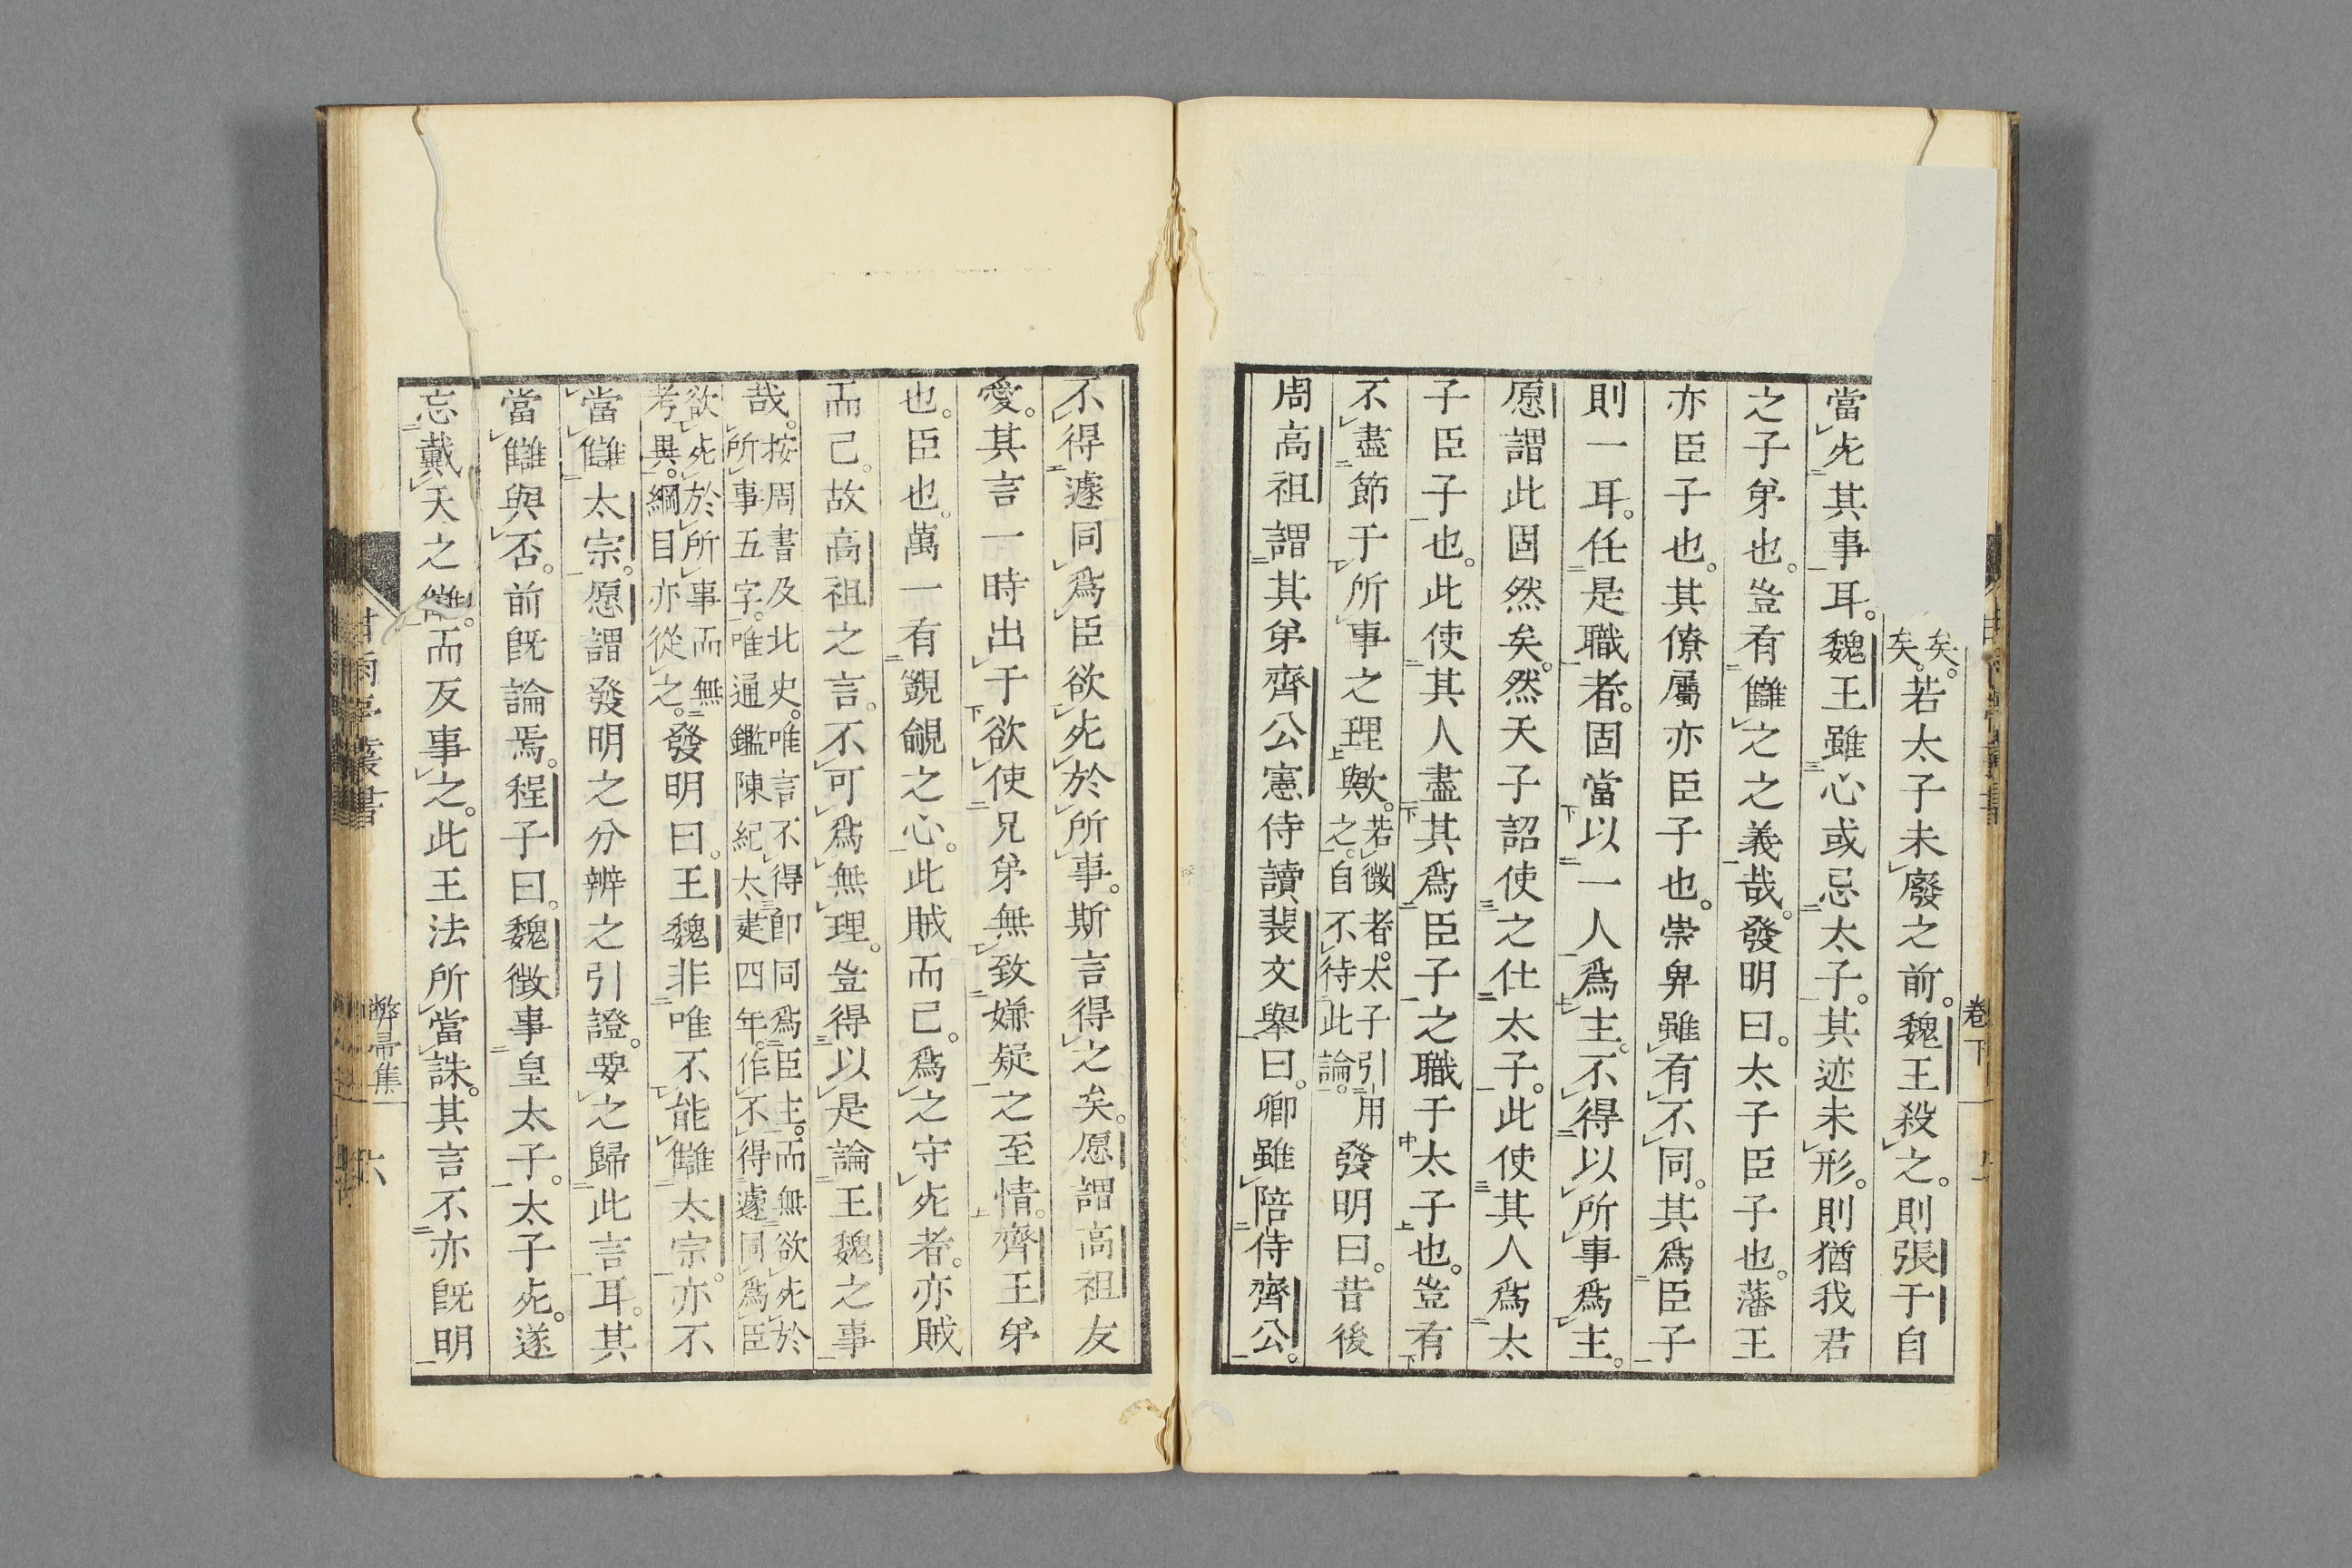 矣。
矣。若太子未廢之前。魏王殺之。則張于自
當死其事耳。魏王雖心或忌太子。其迹未形。則猶我君
之子弟也。豈有讎之之義哉。發明曰。太子臣子也。藩王
亦臣子也。其僚屬亦臣子也。崇卑雖有不同。其爲臣子
則一耳。任是職者。固當以一人爲主。不得以所事爲主。
愿謂此固然矣。然天子詔使之仕太子。此使其人爲太
子臣子也。此使其人盡其爲臣子之職于太子也。豈有
不盡節于所事之理歟。若徵者。太子引用
之。自不待此論。發明曰。昔後
周高祖謂其弟齊公憲侍讀裴文舉曰。卿雖陪侍齊公。
卷下
不得遽同爲臣欲死於所事。斯言得之矣。愿謂高祖友
愛。其言一時出于欲使兄弟無致嫌疑之至情。齊王弟
也。臣也。萬一有覬覦之心。此賊而已。爲之守死者。亦賊
而已。故高祖之言。不可爲無理。豈得以是論王魏之事
哉。按周書及北史。唯言不得即同爲臣主。而無欲死於
所事五字。唯通鑑陳紀太建四年。作不得遽同爲臣
欲死於所事而無
考異。綱目亦從之。發明曰。王魏非唯不能讎太宗。亦不
當讎太宗。愿謂發明之分辨之引證。要之歸此言耳。其
當讎與否。前旣論焉。程子曰。魏徵事皇太子。太子死。遂
忘戴天之讎。而反事之。此王法所當誅。其言不亦旣明
甘雨亭叢書
弊帚集
六